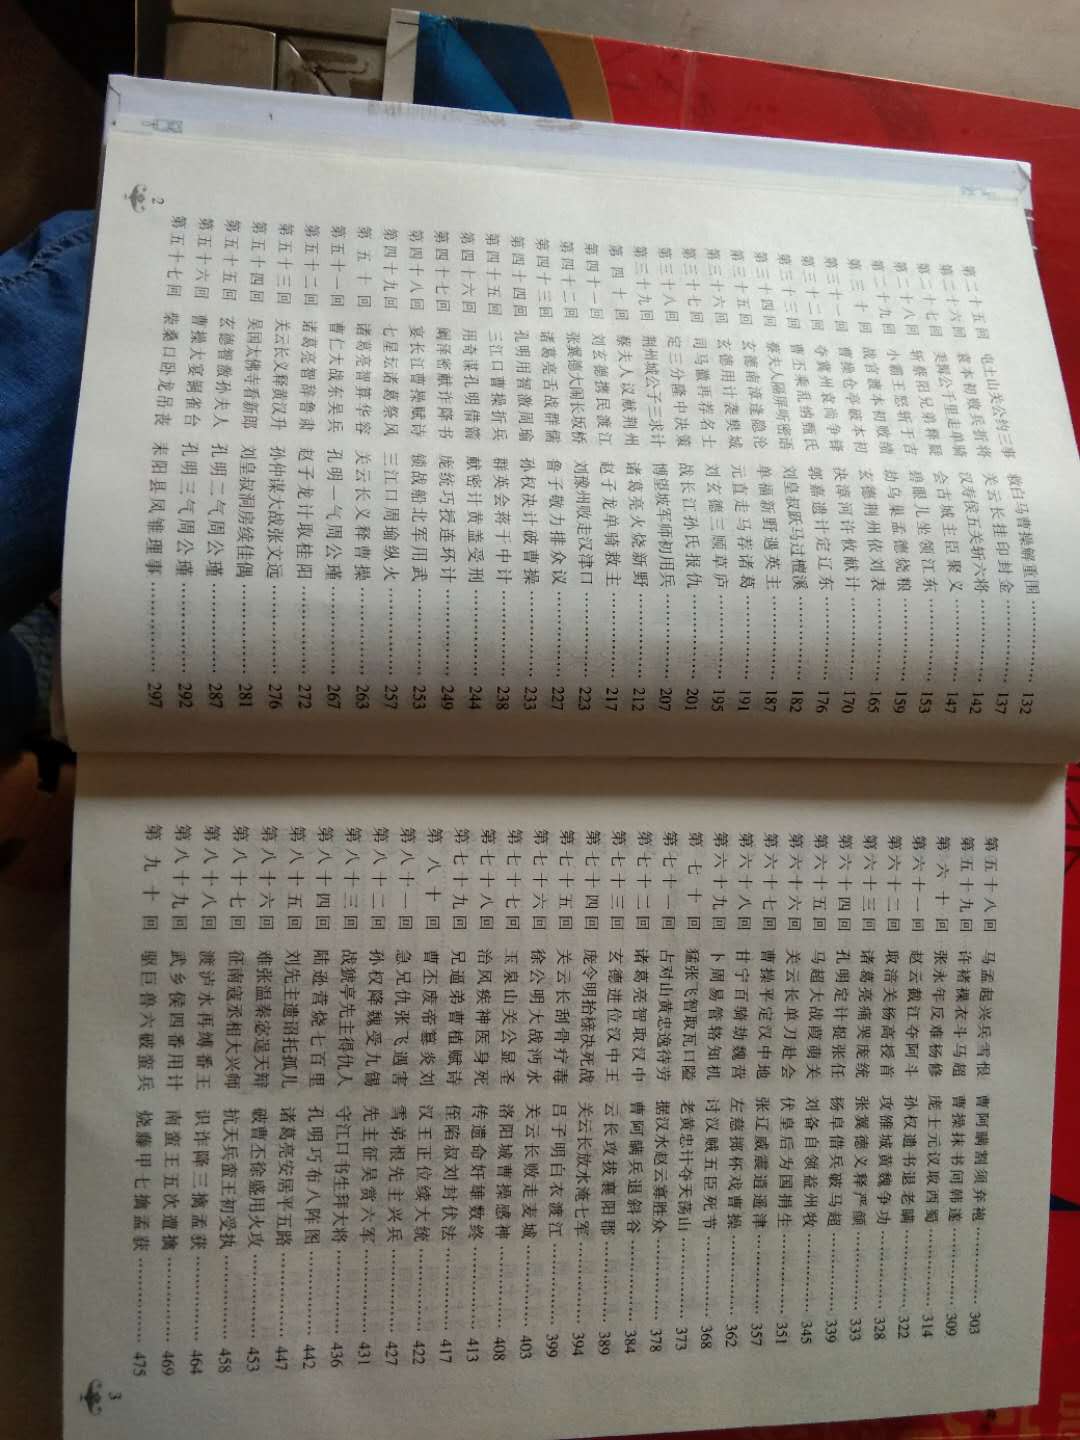 第二十五回 屯土山关公约三事 救白马曹操解重围…………132
第二十六回 袁本初败兵折将 关云长挂印封金…………137
第二十七回 美髯公千里走单骑 汉寿侯五关斩六将…………142
第二十八回 斩蔡阳兄弟释疑 会古城主臣聚义…………147
第二十九回 小霸王怒斩于吉 碧眼儿坐领江东…………153
第三十回 战官渡本初败绩 劫乌巢孟德烧粮…………159
第三十一回 曹操仓亭破本初 玄德荆州依刘表…………165
第三十二回 夺冀州袁尚争锋 决漳河许攸献计…………170
第三十三回 曹丕乘乱纳甄氏 郭嘉遗计定辽东…………176
第三十四回 蔡夫人隔屏听密语 刘皇叔跃马过檀溪…………182
第三十五回 玄德南漳逢隐沦 单福新野遇英主…………187
第三十六回 玄德用计袭樊城 元直走马荐诸葛…………191
第三十七回 司马徽再荐名士 刘玄德三顾草庐…………195
第三十八回 定三分隆中决策 战长江孙氏报仇…………201
第三十九回 荆州城公子三求计 博望坡军师初用兵…………207
第四十回 蔡夫人议献荆州 诸葛亮火烧新野…………212
第四十一回 刘玄德携民渡江 赵子龙单骑救主…………217
第四十二回 张翼德大闹长坂桥 刘豫州败走汉津口…………223
第四十三回 诸葛亮舌战群儒 鲁子敬力排众议…………227
第四十四回 孔明用智激周瑜 孙权决计破曹操…………233
第四十五回 三江口曹操折兵 群英会蒋干中计…………238
第四十六回 用奇谋孔明借箭 献密计黄盖受刑…………244
第四十七回 阚泽密献诈降书 庞统巧授连环计…………249
第四十八回 宴长江曹操赋诗 锁战船北军用武…………253
第四十九回 七星坛诸葛祭风 三江口周瑜纵火…………257
第五十回 诸葛亮智算华容 关云长义释曹操…………263
第五十一回 曹仁大战东吴兵 孔明一气周公瑾…………267
第五十二回 诸葛亮智辞鲁肃 赵子龙计取桂阳…………272
第五十三回 关云长义释黄汉升 孙仲谋大战张文远…………276
第五十四回 吴国太佛寺看新郎 刘皇叔洞房续佳偶…………281
第五十五回 玄德智激孙夫人 孔明二气周公瑾…………287
第五十六回 曹操大宴铜雀台 孔明三气周公瑾…………292
第五十七回 柴桑口卧龙吊丧 耒阳县凤雏理事…………297
2
第五十八回 马孟起兴兵雪恨 曹阿瞒割须弃袍…………303
第五十九回 许诸裸衣斗马超 曹操抹书问韩遂…………309
第六十回 张永年反难杨修 庞士元议取西蜀…………314
第六十一回 赵云截江夺阿斗 孙权遗书退老瞒…………322
第六十二回 取涪关杨高授首 攻雒城黄魏争功…………328
第六十三回 诸葛亮痛哭庞统 张翼德义释严颜…………333
第六十四回 孔明定计捉张任 杨阜借兵破马超…………339
第六十五回 马超大战葭萌关 刘备自领益州牧…………345
第六十六回 关云长单刀赴会 伏皇后为国捐生…………351
第六十七回 曹操平定汉中地 张辽威震逍遥津…………357
第六十八回 甘宁百骑劫魏营 左慈掷杯戏曹操…………362
第六十九回 卜周易管辂知机 讨汉贼五臣死节…………368
第七十回 猛张飞智取瓦口隘 老黄忠计夺天荡山…………373
第七十一回 占对山黄忠逸待劳 据汉水赵云寡胜众…………378
第七十二回 诸葛亮智取汉中 曹阿瞒兵退斜谷…………384
第七十三回 玄德进位汉中王 云长攻拔襄阳郡…………389
第七十四回 庞令明抬榇决死战 关云长放水淹七军…………394
第七十五回 关云长刮骨疗毒 吕子明白衣渡江…………399
第七十六回 徐公明大战沔水 关云长败走麦城…………403
第七十七回 玉泉山关公显圣 洛阳城曹操感神…………408
第七十八回 治风疾神医身死 传遗命奸雄数终…………413
第七十九回 兄逼弟曹植赋诗 侄陷叔刘封伏法…………417
第八十回 曹丕废帝篡炎刘 汉王正位续大统…………422
第八十一回 急兄仇张飞遇害 雪弟恨先主兴兵…………427
第八十二回 孙权降魏受九锡 先主征吴赏六军…………431
第八十三回 战猇亭先主得仇人 守江口书生拜大将…………436
第八十四回 陆逊营烧七百里 孔明巧布八阵图…………442
第八十五回 刘先主遗诏托孤儿 诸葛亮安居平五路…………447
第八十六回 难张温秦宓逞天辩 破曹丕徐盛用火攻…………453
第八十七回 征南寇丞相大兴师 抗天兵蛮王初受执…………458
第八十八回 渡泸水再缚番王 识诈降三擒孟获…………464
第八十九回 武乡侯四番用计 南蛮王五次遭擒…………469
第九十回 驱巨兽六破蛮兵 烧藤甲七擒孟获…………475
3